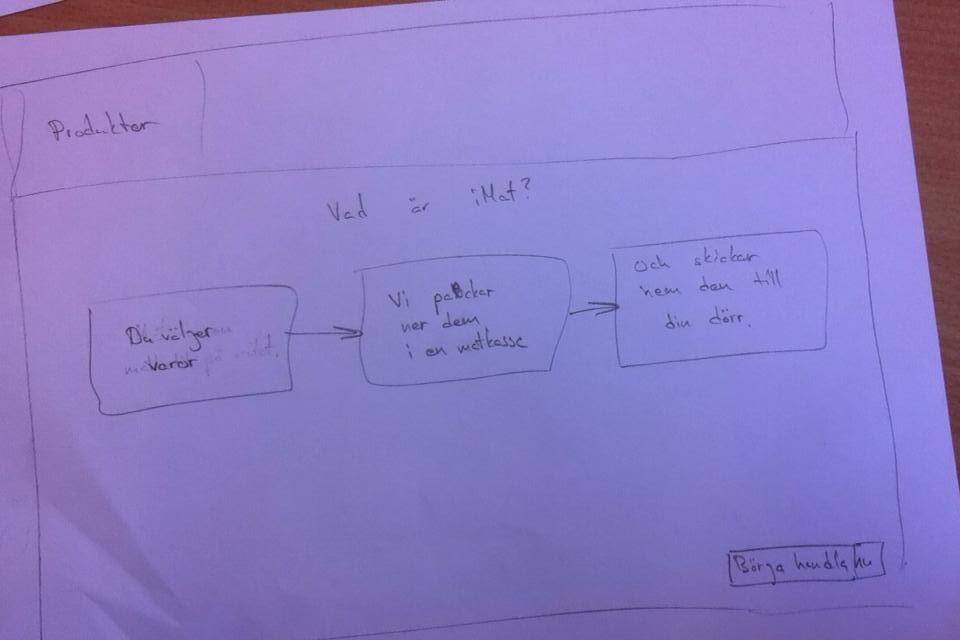 Produkter
Vad är iMat?
Du väljer
varor
Vi packar
ner dem
i en matkasse
Och skickar
hem den till
din dörr.
Börja handla nu